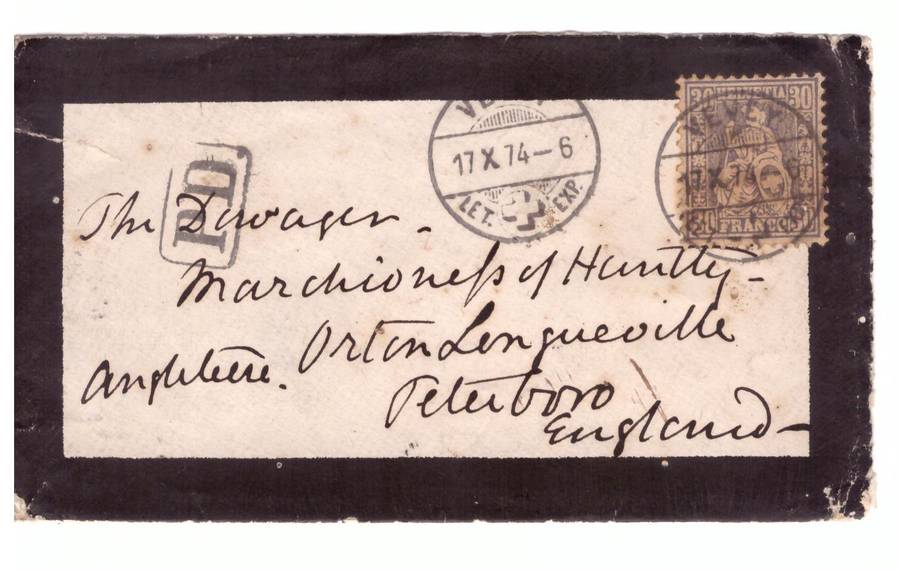 30 HELVETIA 30
VEVEY
17 X 74 – 6
LET. EXP.
VEVEY
17 X 74 – 6
30 FRANCO 30
P.D.
The Dowager
Marchioness of Huntly
Orton Longueville
Angleterre.
Peterboro
England